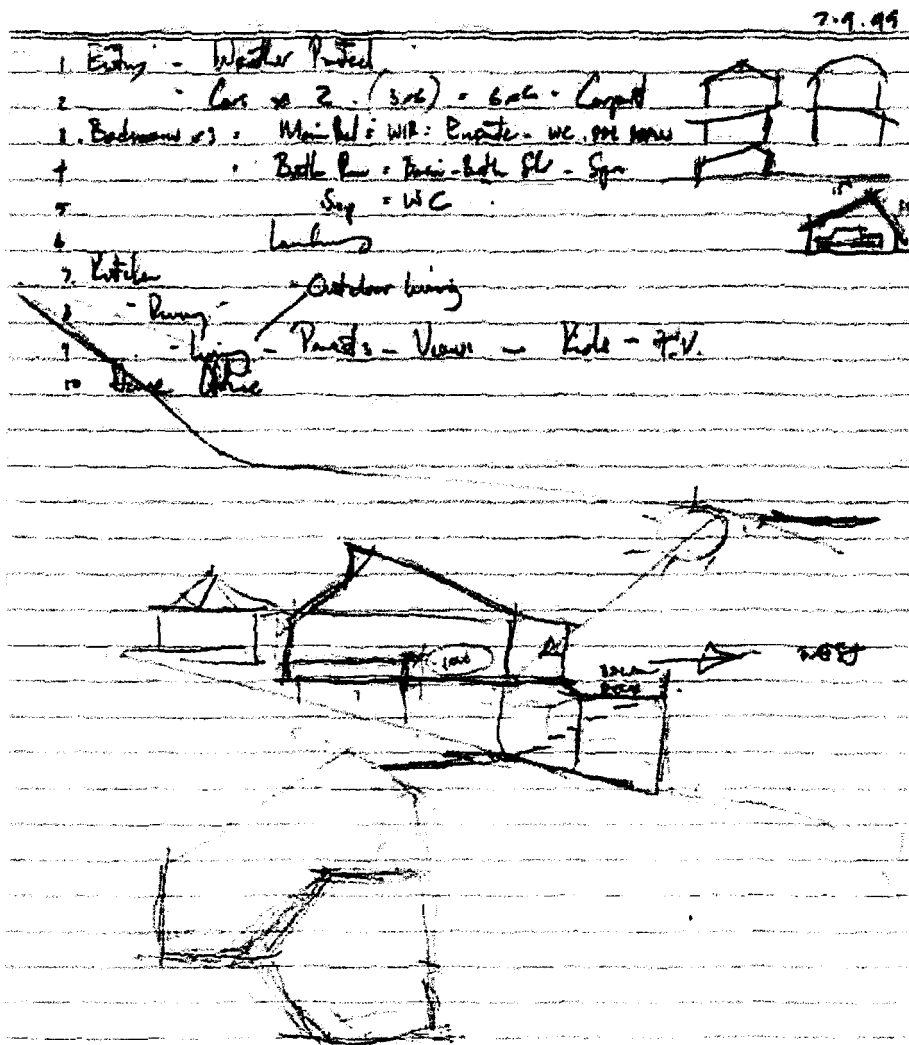 7.9.99
1 Entry - Weather Protect
2 - Cars x 2 . (3x6) = 6x6 - Carport
3 . Bedrooms x3 = Main Bed = WIR = Ensuite - WC .
4 Bath Rm = Basin - Bath Shr -
5 Sep = WC .
6 Laundry
7. Kitchen
Outdoor living
8 - Dining -
9 - Living - Parents - Views - Kids - T.V.
10 Home Office